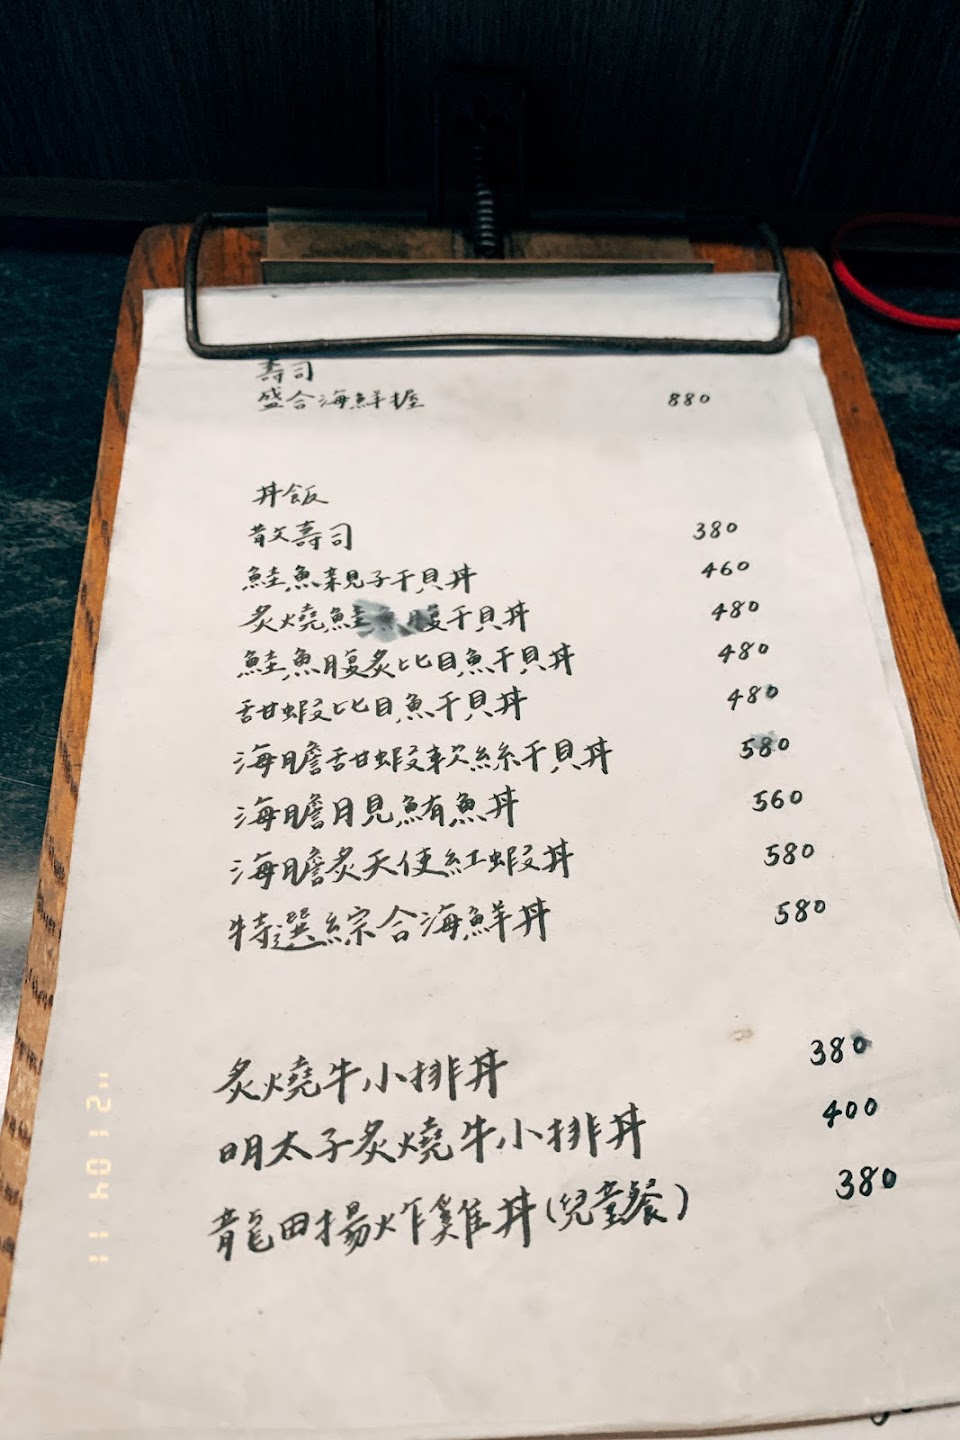 壽司
盛合海鮮握 880
丼飯
散文壽司 380
鮭魚親子干貝丼 460
炙燒鮭魚腹干貝丼 480
鮭魚腹炙比目魚干貝丼 480
甜蝦比目魚干貝丼 480
海膽甜蝦軟絲干貝丼 580
海膽月見鮪魚丼 560
海膽炙天使紅蝦丼 580
特選綜合海鮮丼 580
炙燒牛小排丼 380
明太子炙燒牛小排丼 400
龍田揚炸雞丼(兒童餐) 380